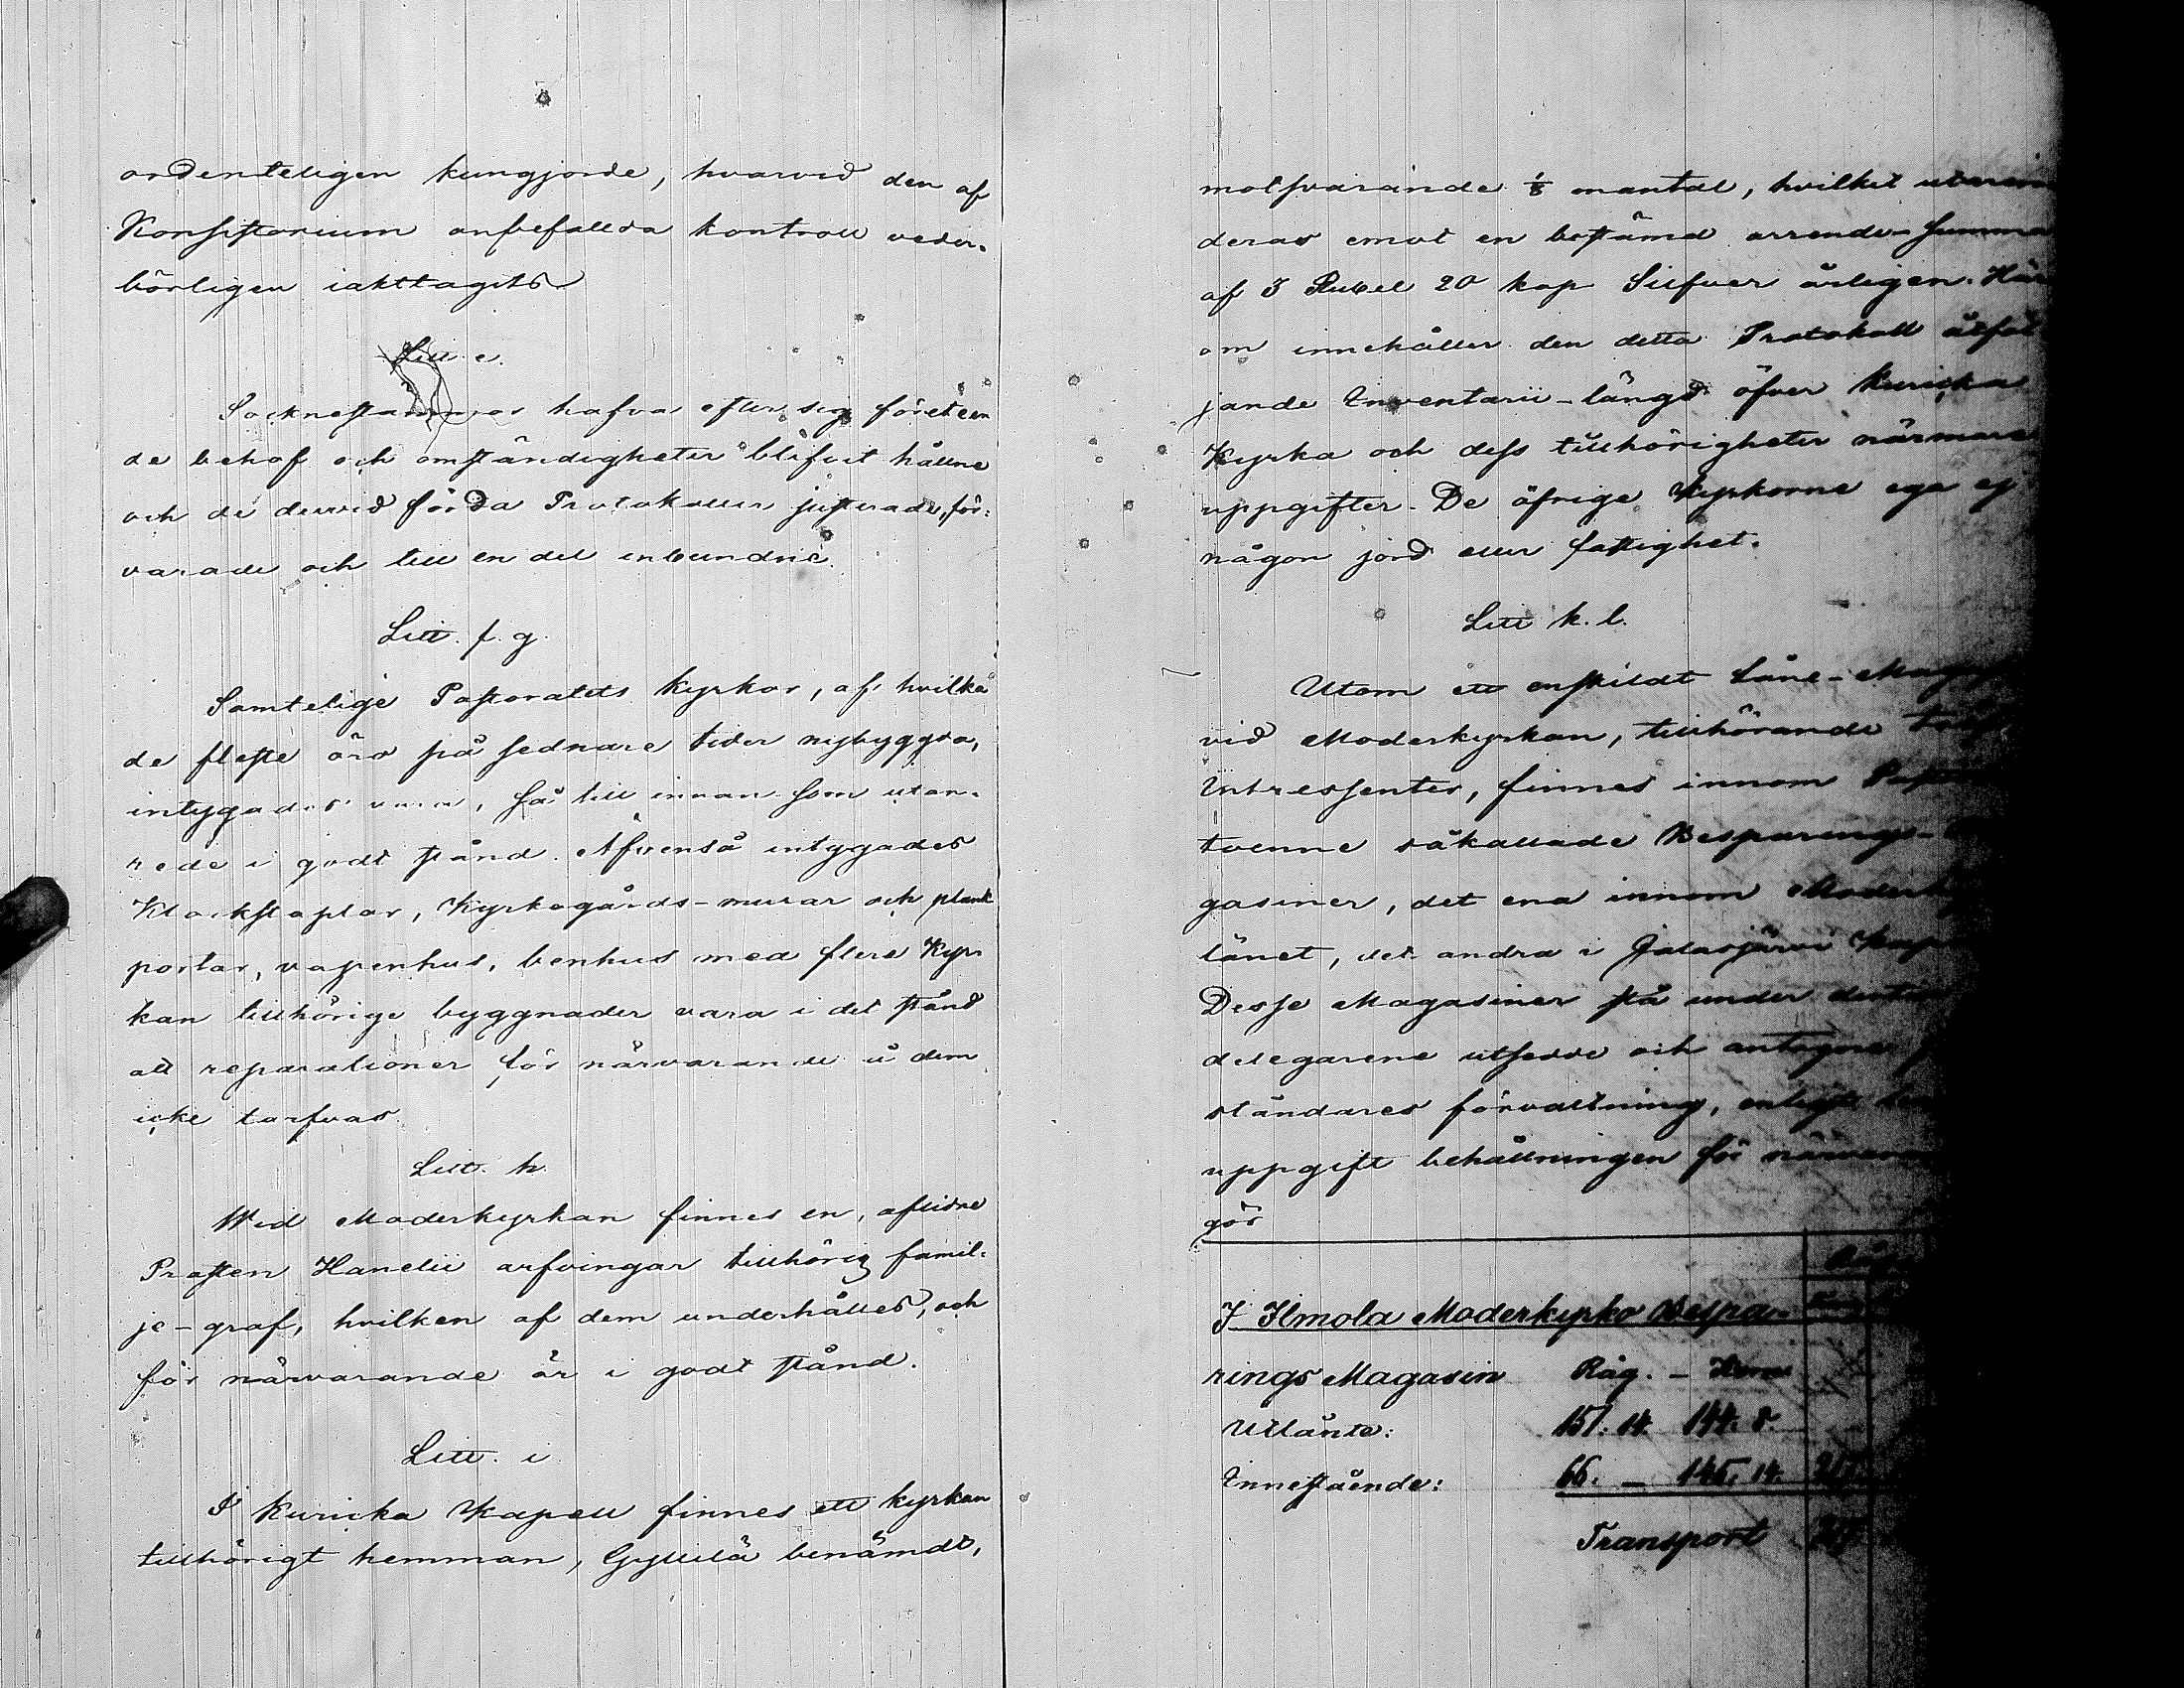 ordenteligen kungjorde, hvarvid den af
Konsistorium anbefallda kontroll veder-
börligen iakttagits
Litt e.
Sockenstämmor hafva efter sig företeen
de behof och omständigheter blifvit hållne
och de dervid förda Protokoller justerade, för-
varade och till en del inbundne.
Litt. f. g.
Samtelige Pastoratets Kyrkor, af hvilka
de fleste äro på sednare tider nybyggda,
intygades vara, så till innan som utan-
rede i godt stånd. Äfvenså intygades
Klockstaplar, Kyrkogårds-murar och plank
portar, vapenhus, benhus med flere Kyr
kan tillhörige byggnader vara i det stånd
att reparationer för närvarande å dem
icke tarfvas.
Litt. h.
Wid Moderkyrkan finnes en, aflidne
Prosten Hanelii arfvingar tillhörig famil-
je-graf, hvilken af dem underhålles, och
för närvarande är i godt stånd.
Litt. i
I Kuricka Kapell finnes ett kyrkan
tillhörigt hemman, Gyllilä benämdt,
motsvarande 1/8 mantal, hvilket
deras emot en bestämd arrende-summa
af 3 Rubel 20 kop Silfver årligen. Här
om innehåller den detta Protokoll åtföl
jande Inventarii-längd öfver Kuricka
Kyrka och dess tillhörigheter närmare
uppgifter. De öfrige Kyrkorne ega ej
någon jord eller fastighet.
Litt k. l.
Utom ett enskildt Låne-
vid Moderkyrkan, tillhörande
Intressenter, finnes innom
tvenne såkallade Besparings-
gasiner, det ena innom
länet, det andra i Jalasjärvi
Desse Magasiner stå under
delegarene utsedde och antagne
ståndares förvaltning, enligt
uppgift behållningen för
gör
I Ilmola Moderkyrko Bespa-
rings Magasin Råg. - Korn
Utlånte: 151. 14. 144. 8.
Innestående: 66. - 145. 14.
Transport